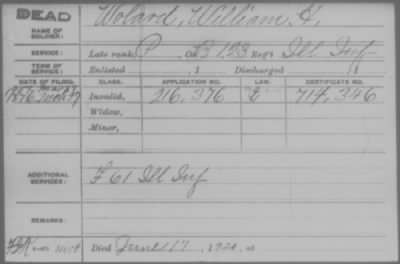 DEAD
NAME OF SOLDIER:
Wolard, William H.
SERVICE:
Late rank, P Co. B 123 Reg't Ill Inf
TERM OF SERVICE:
Enlisted , 1 Discharged , 1
DATE OF FILING. CLASS. APPLICATION NO. LAW. CERTIFICATE NO.
1876 Invalid, 216,376 714,346
Widow,
Minor,
ADDITIONAL SERVICES:
F 61 Ill Inf
REMARKS:
Died June 17, 1920, at